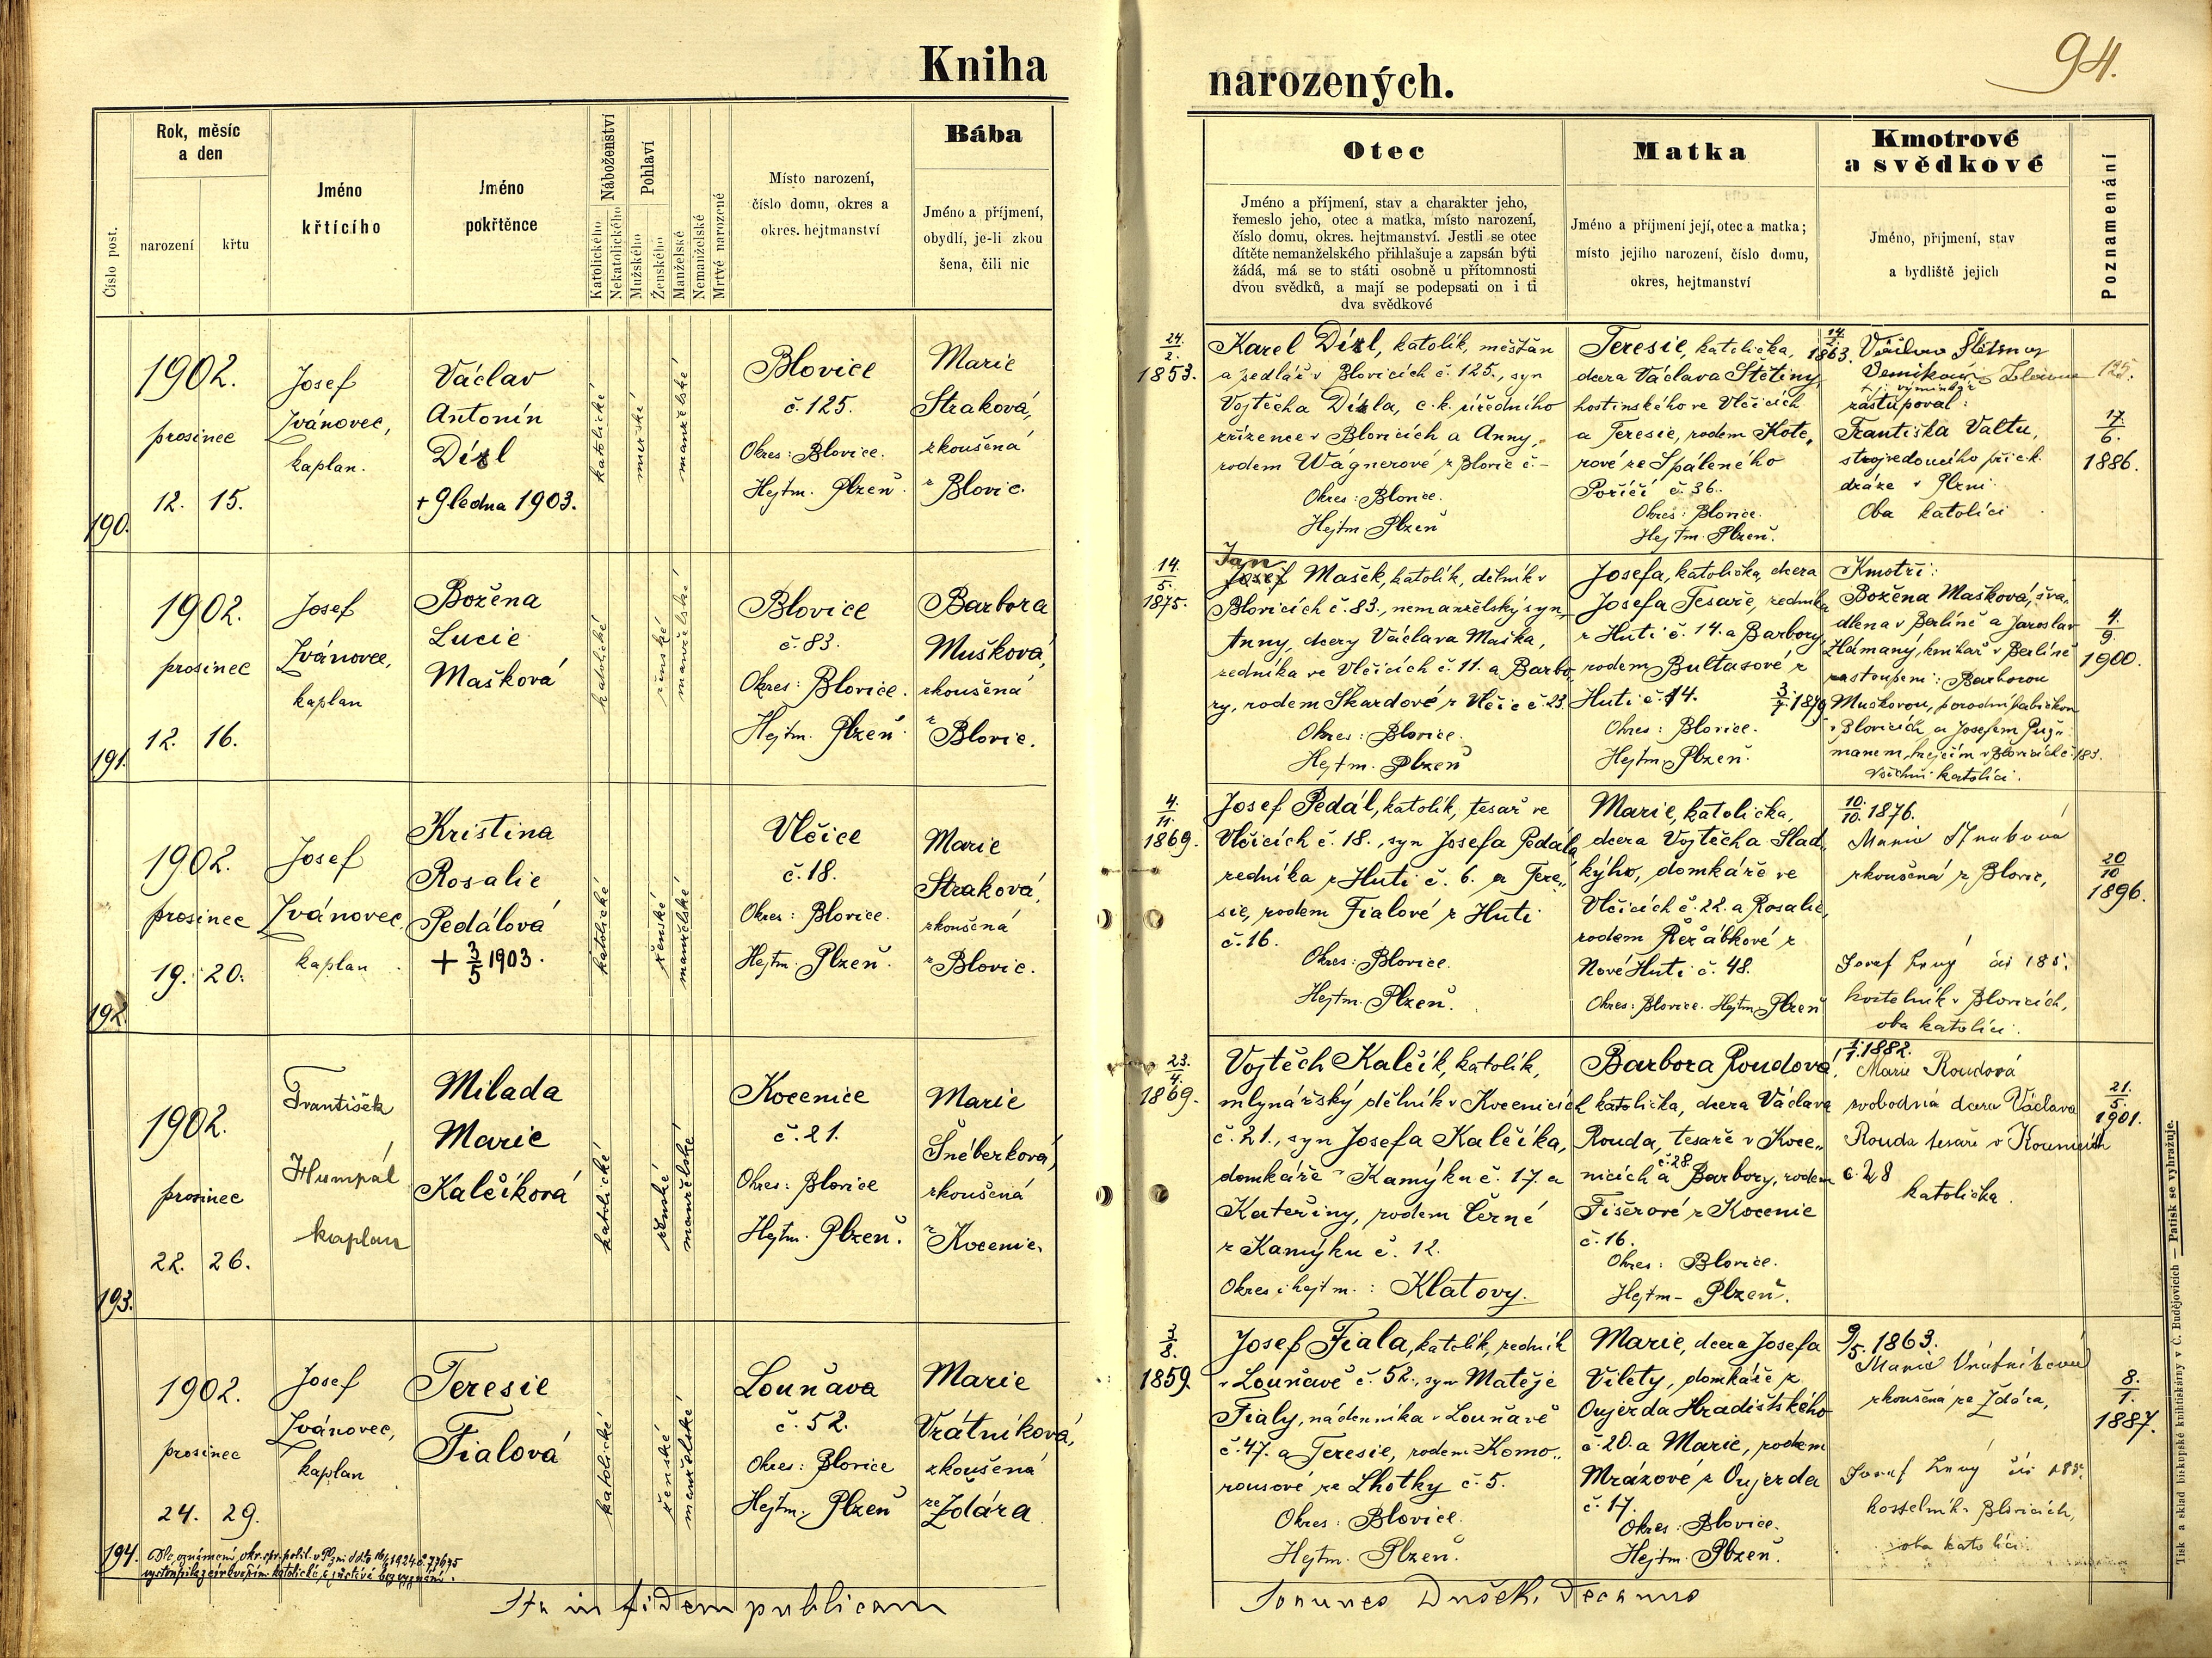 Kniha
narozených.
94.
Číslo post.
Rok, měsíc
a den
narození
křtu
Jméno
křtícího
Jméno
pokřtěnce
Náboženství
Katolického
Nekatolického
Pohlaví
Mužského
Ženského
Manželské
Nemanželské
Mrtvě narozené
Místo narození,
číslo domu, okres a
okres. hejtmanství
Bába
Jméno a příjmení,
obydlí, je-li zkou
šena, čili nic
Otec
Jméno a příjmení, stav a charakter jeho,
řemeslo jeho, otec a matka, místo narození,
číslo domu, okres. hejtmanství. Jestli se otec
dítěte nemanželského přihlašuje a zapsán býti
žádá, má se to státi osobně u přítomnosti
dvou svědků, a mají se podepsati on i ti
dva svědkové
Matka
Jméno a příjmení její, otec a matka;
místo jejího narození, číslo domu,
okres, hejtmanství
Kmotrové
a svědkové
Jméno, příjmení, stav
a bydliště jejich
Poznamenání
190.
1902.
prosinec
12. 15.
Josef
Ivánovec,
kaplan.
Václav
Antonín
Dízl
+ 9 ledna 1903.
katolické
mužské
manželské
Blovice
č. 125.
Okres: Blovice.
Hejtm. Plzeň.
Marie
Straková,
zkoušená
z Blovic.
24.
2.
1853.
Karel Dízl, katolík, měšťan
a sedlář v Blovicích č. 125., syn
Vojtěcha Dízla, c. k. úředního
zřízence v Blovicích a Anny,
rodem Wágnerové z Blovic č. –
Okres: Blovice.
Hejtm. Plzeň
Teresie, katolička,
dcera Václava Štětiny,
hostinského ve Vlčicích
a Teresie, rodem Kote„
rové ze Spáleného
Poříčí č. 36.
Okres: Blovice.
Hejtm. Plzeň.
14.
1863.
Václav Štětina
výminkář
zastupoval:
Františka Valtu,
strojvedoucího při c. k.
dráze v Plzni.
Oba katolíci
125.
17.
6.
1886.
191.
1902.
prosinec
12. 16.
Josef
Ivánovec,
kaplan
Božena
Lucie
Mašková
katolické
ženské
manželské
Blovice
č. 83.
Okres: Blovice.
Hejtm. Plzeň.
Barbora
Mušková,
zkoušená
z Blovic.
14.
5.
1875.
Jan
Josef Mašek, katolík, dělník v
Blovicích č. 83., nemanželský syn
Anny, dcery Václava Maška,
zedníka ve Vlčicích č. 11. a Barbo„
ry, rodem Skardové z Vlčic č. 23.
Okres: Blovice.
Hejtm. Plzeň
Josefa, katolička, dcera
Josefa Tesaře, zedníka
z Huti č. 14. a Barbory,
rodem Bultasové z
Huti č. 14.
3
7. 1879
Okres: Blovice.
Hejtm. Plzeň.
Kmotři:
Božena Mašková, šva„
dlena v Berlíně a Jaroslav
Hámaný, knihař v Berlíně
zastoupeni: Barborou
Muškovou, porodní babičkou
v Blovicích a Josefem
manem, krejčím v Blovicích č. 183.
Všichni katolíci.
4.
9.
1900.
192.
1902.
prosinec
19. 20.
Josef
Ivánovec,
kaplan
Kristina
Rosalie
Pedálová
+ 3
5 1903.
katolické
ženské
manželské
Vlčice
č. 18.
Okres: Blovice.
Hejtm. Plzeň.
Marie
Straková,
zkoušená
z Blovic.
4.
11.
1869.
Josef Pedál, katolík, tesař ve
Vlčicích č. 18., syn Josefa Pedála
zedníka z Huti č. 6. a Tere„
sie, rodem Fialové z Huti
č. 16.
Okres: Blovice.
Hejtm. Plzeň.
Marie, katolička,
dcera Vojtěcha Slad„
kýho, domkáře ve
Vlčicích č. 22. a Rosalie,
rodem Řeřábkové z
Nové Huti č. 48.
Okres: Blovice. Hejtm. Plzeň
10
10. 1876.
Marie Straková
zkoušená z Blovic,
Josef Levý čís 185.
kostelník v Blovicích,
oba katolíci.
20
10
1896.
193.
1902.
prosinec
22. 26.
František
Humpál
kaplan
Milada
Marie
Kalčíková
katolické
ženské
manželské
Kocenice
č. 21.
Okres: Blovice
Hejtm. Plzeň.
Marie
Šnéberková,
zkoušená
z Kocenic.
23.
4.
1869.
Vojtěch Kalčík, katolík,
mlynářský dělník v Kocenicích
č. 21., syn Josefa Kalčíka,
domkáře z Kamýku č. 17. a
Kateřiny, rodem Černé
z Kamýku č. 12.
Okres i hejtm.: Klatovy.
Barbora Roudová,
katolička, dcera Václava
Rouda, tesaře v Koce„
nicích č. 28. a Barbory, rodem
Fišerové z Kocenic
č. 16.
Okres: Blovice.
Hejtm – Plzeň.
1. 1882.
Marie Roudová
svobodná dcera Václava
Rouda tesaře v Kocenicích
č. 28
katolička.
21.
5.
1901.
194.
1902.
prosinec
24. 29.
Josef
Ivánovec,
kaplan
Teresie
Fialová
katolické
ženské
manželské
Louňava
č. 52.
Okres: Blovice
Hejtm. Plzeň
Marie
Vrátníková,
zkoušená
ze Zdára.
8.
1859
Josef Fiala, katolík, zedník
v Louňavě č. 52., syn Matěje
Fialy, nádenníka v Louňavě
č. 47. a Teresie, rodem Komo„
rousové ze Lhotky č. 5.
Okres: Blovice.
Hejtm. Plzeň.
Marie, dcera Josefa
Vílety, domkáře z
Oujezda Hradišťského
č. 20. a Marie, rodem
Mrázové z Oujezda
č. 17.
Okres: Blovice.
Hejtm. Plzeň.
9/5. 1863.
Marie Vrátníková
zkoušená ze Zdára,
Josef Levý čís 185.
kostelník v Blovicích,
oba katolíci
8.
1.
1887.
Dle oznámení okr. spr. polit. v Plzni
vystoupila z církve řím. katolické, zůstává bez vyznání.
Ita in fidem publicam
Joannes Dušek, Decanus
Tisk a sklad biskupské knihtiskárny v Č. Budějovicích — Patisk se vyhražuje.